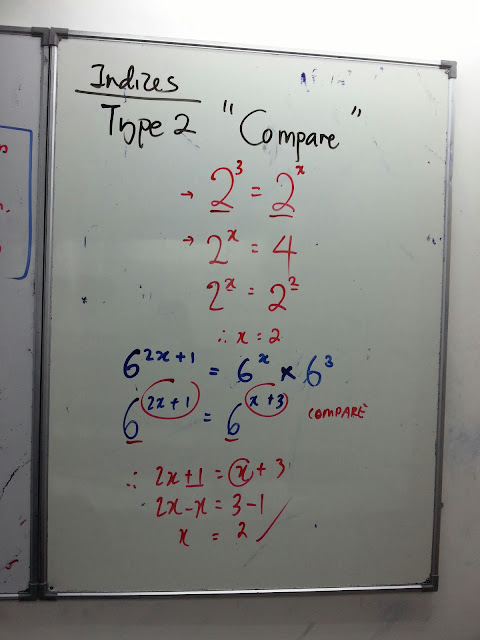 Indizes
Type 2 "Compare"
→ 2³ = 2ˣ
→ 2ˣ = 4
2ˣ = 2²
∴ x = 2
6²ˣ⁺¹ = 6ˣ × 6³
6²ˣ⁺¹ = 6ˣ⁺³ COMPARE
∴ 2x + 1 = x + 3
2x - x = 3 - 1
x = 2